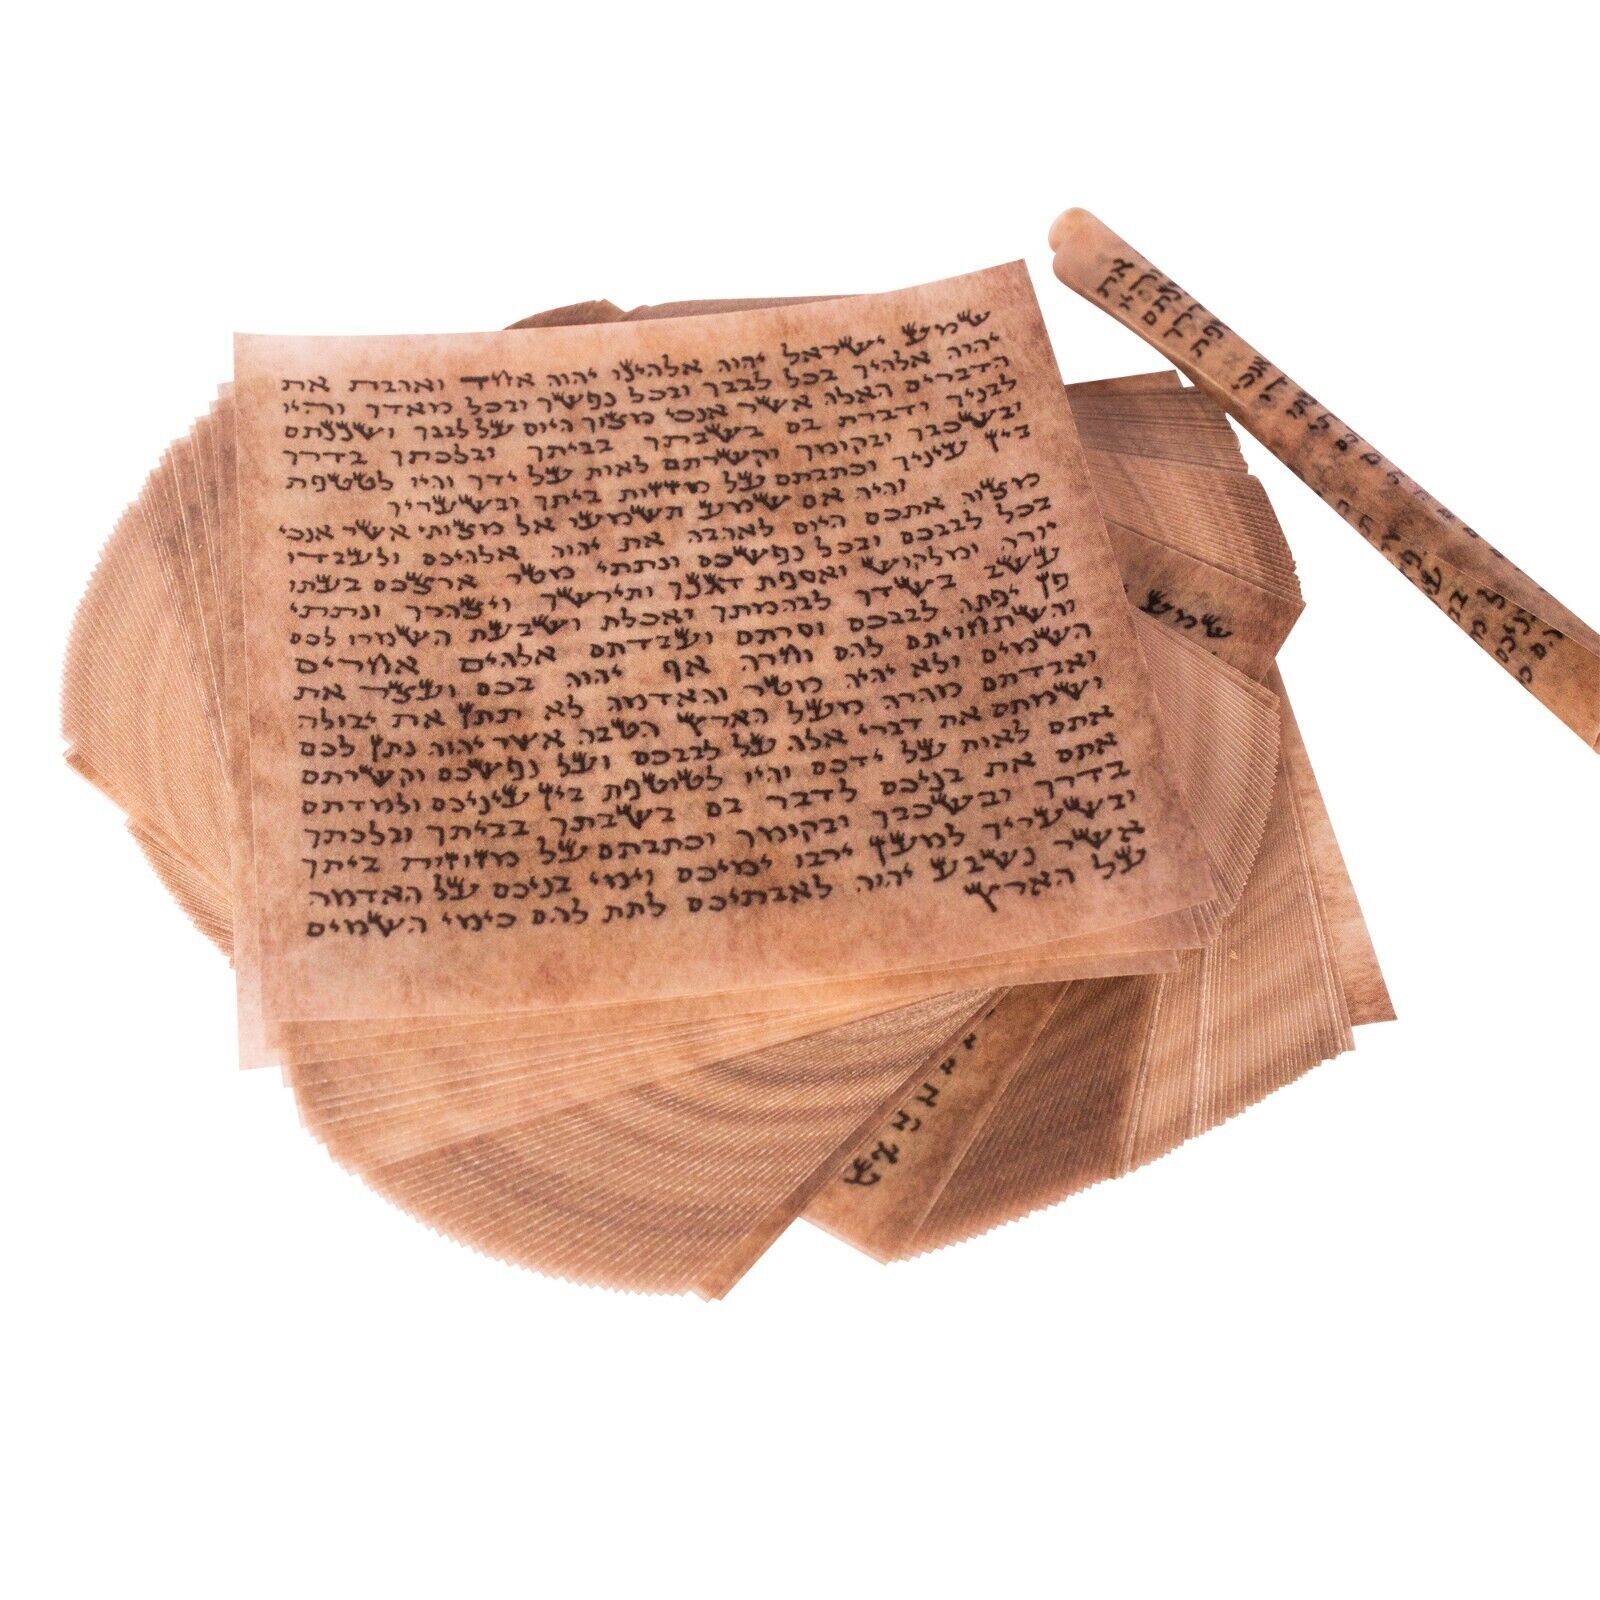 שמע ישראל יהוה אלהינו יהוה אחד ואהבת את
יהוה אלהיך בכל לבבך ובכל נפשך ובכל מאדך והיו
הדברים האלה אשר אנכי מצוך היום על לבבך ושננתם
לבניך ודברת בם בשבתך בביתך ובלכתך בדרך
ובשכבך ובקומך וקשרתם לאות על ידך והיו לטטפת
בין עיניך וכתבתם על מזזות ביתך ובשעריך
והיה אם שמע תשמעו אל מצותי אשר אנכי
מצוה אתכם היום לאהבה את יהוה אלהיכם ולעבדו
בכל לבבכם ובכל נפשכם ונתתי מטר ארצכם בעתו
יורה ומלקוש ואספת דגנך ותירשך ויצהרך ונתתי
עשב בשדך לבהמתך ואכלת ושבעת השמרו לכם
פן יפתה לבבכם וסרתם ועבדתם אלהים אחרים
והשתחויתם להם וחרה אף יהוה בכם ועצר את
השמים ולא יהיה מטר והאדמה לא תתן את יבולה
ואבדתם מהרה מעל הארץ הטבה אשר יהוה נתן לכם
ושמתם את דברי אלה על לבבכם ועל נפשכם וקשרתם
אתם לאות על ידכם והיו לטוטפת בין עיניכם ולמדתם
אתם את בניכם לדבר בם בשבתך בביתך ובלכתך
בדרך ובשכבך ובקומך וכתבתם על מזוזות ביתך
ובשעריך למען ירבו ימיכם וימי בניכם על האדמה
אשר נשבע יהוה לאבתיכם לתת להם כימי השמים
על הארץ
שמע